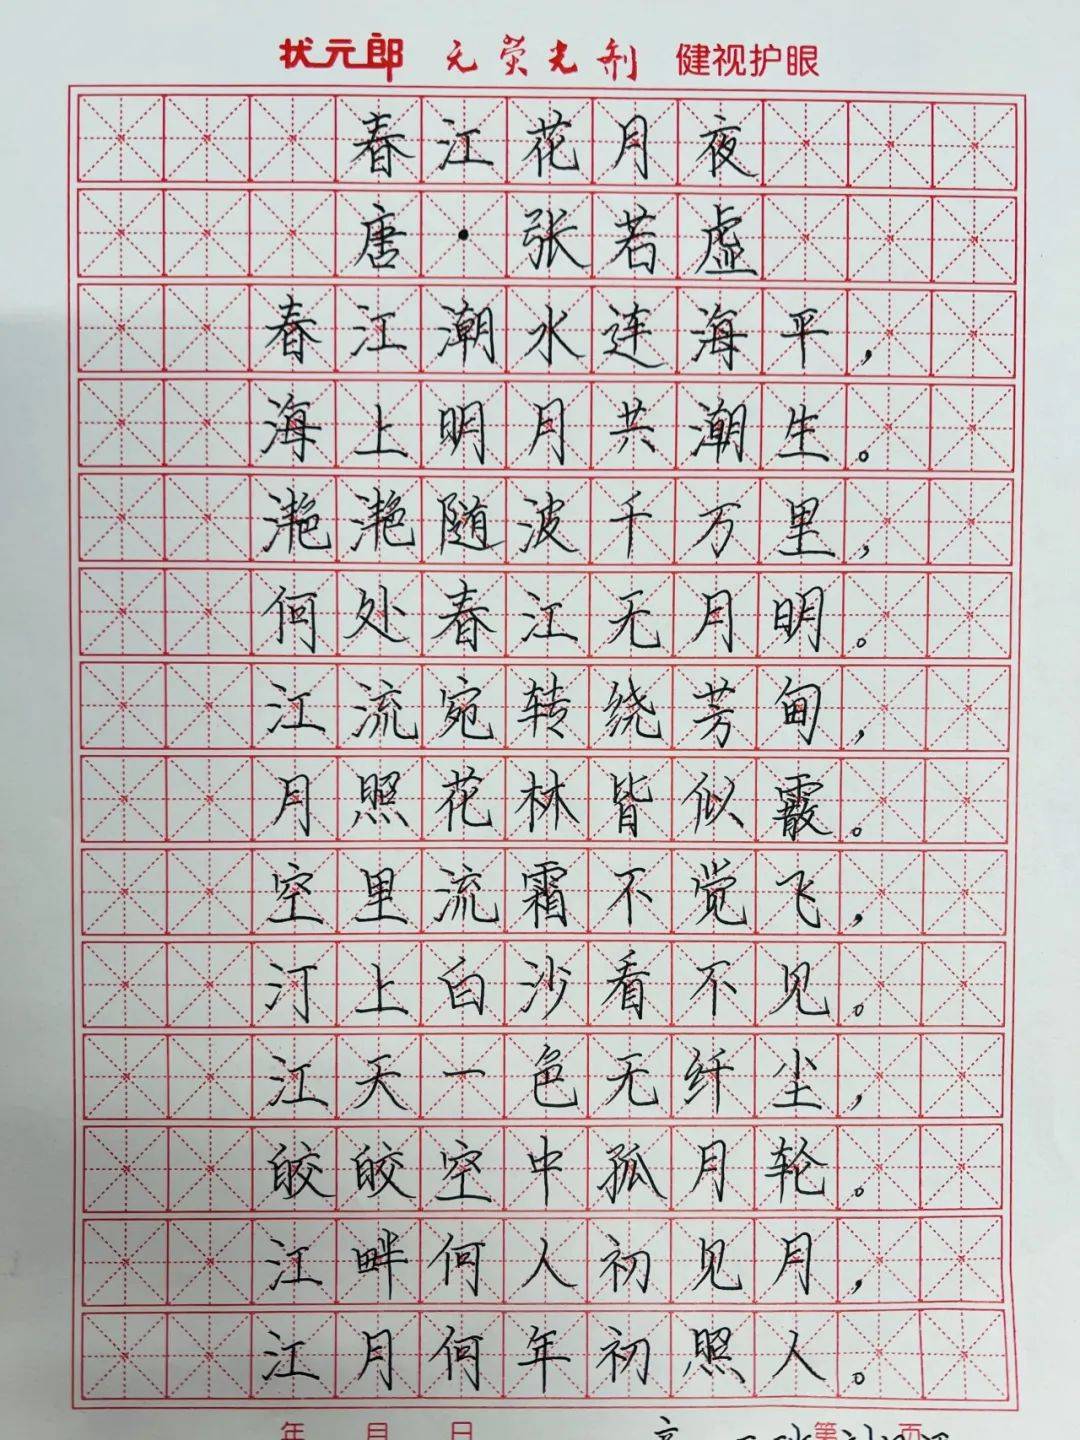 状元郎 无荧光剂 健视护眼
春江花月夜
唐·张若虚
春江潮水连海平，
海上明月共潮生。
滟滟随波千万里，
何处春江无月明。
江流宛转绕芳甸，
月照花林皆似霰。
空里流霜不觉飞，
汀上白沙看不见。
江天一色无纤尘，
皎皎空中孤月轮。
江畔何人初见月，
江月何年初照人。
年 月 日 第 页